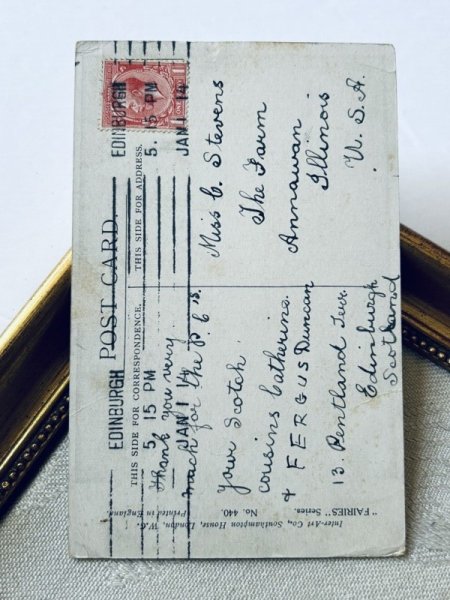 POST CARD.
THIS SIDE FOR CORRESPONDENCE.
THIS SIDE FOR ADDRESS.
EDINBURGH
5. 15 PM
JAN 1 14
EDINBURGH
5. 15 PM
JAN 1 14
Thank you very
much for the P.Cs.
Your Scotch
cousins Catherine.
& FERGUS Duncan
13 Pentland Terr.
Edinburgh
Scotland
Miss C. Stevens
The Farm
Annawan
Illinois
U.S.A.
Inter-Art Co., Southampton House, London, W.C.
"FAIRIES" Series. No. 440. Printed in England.